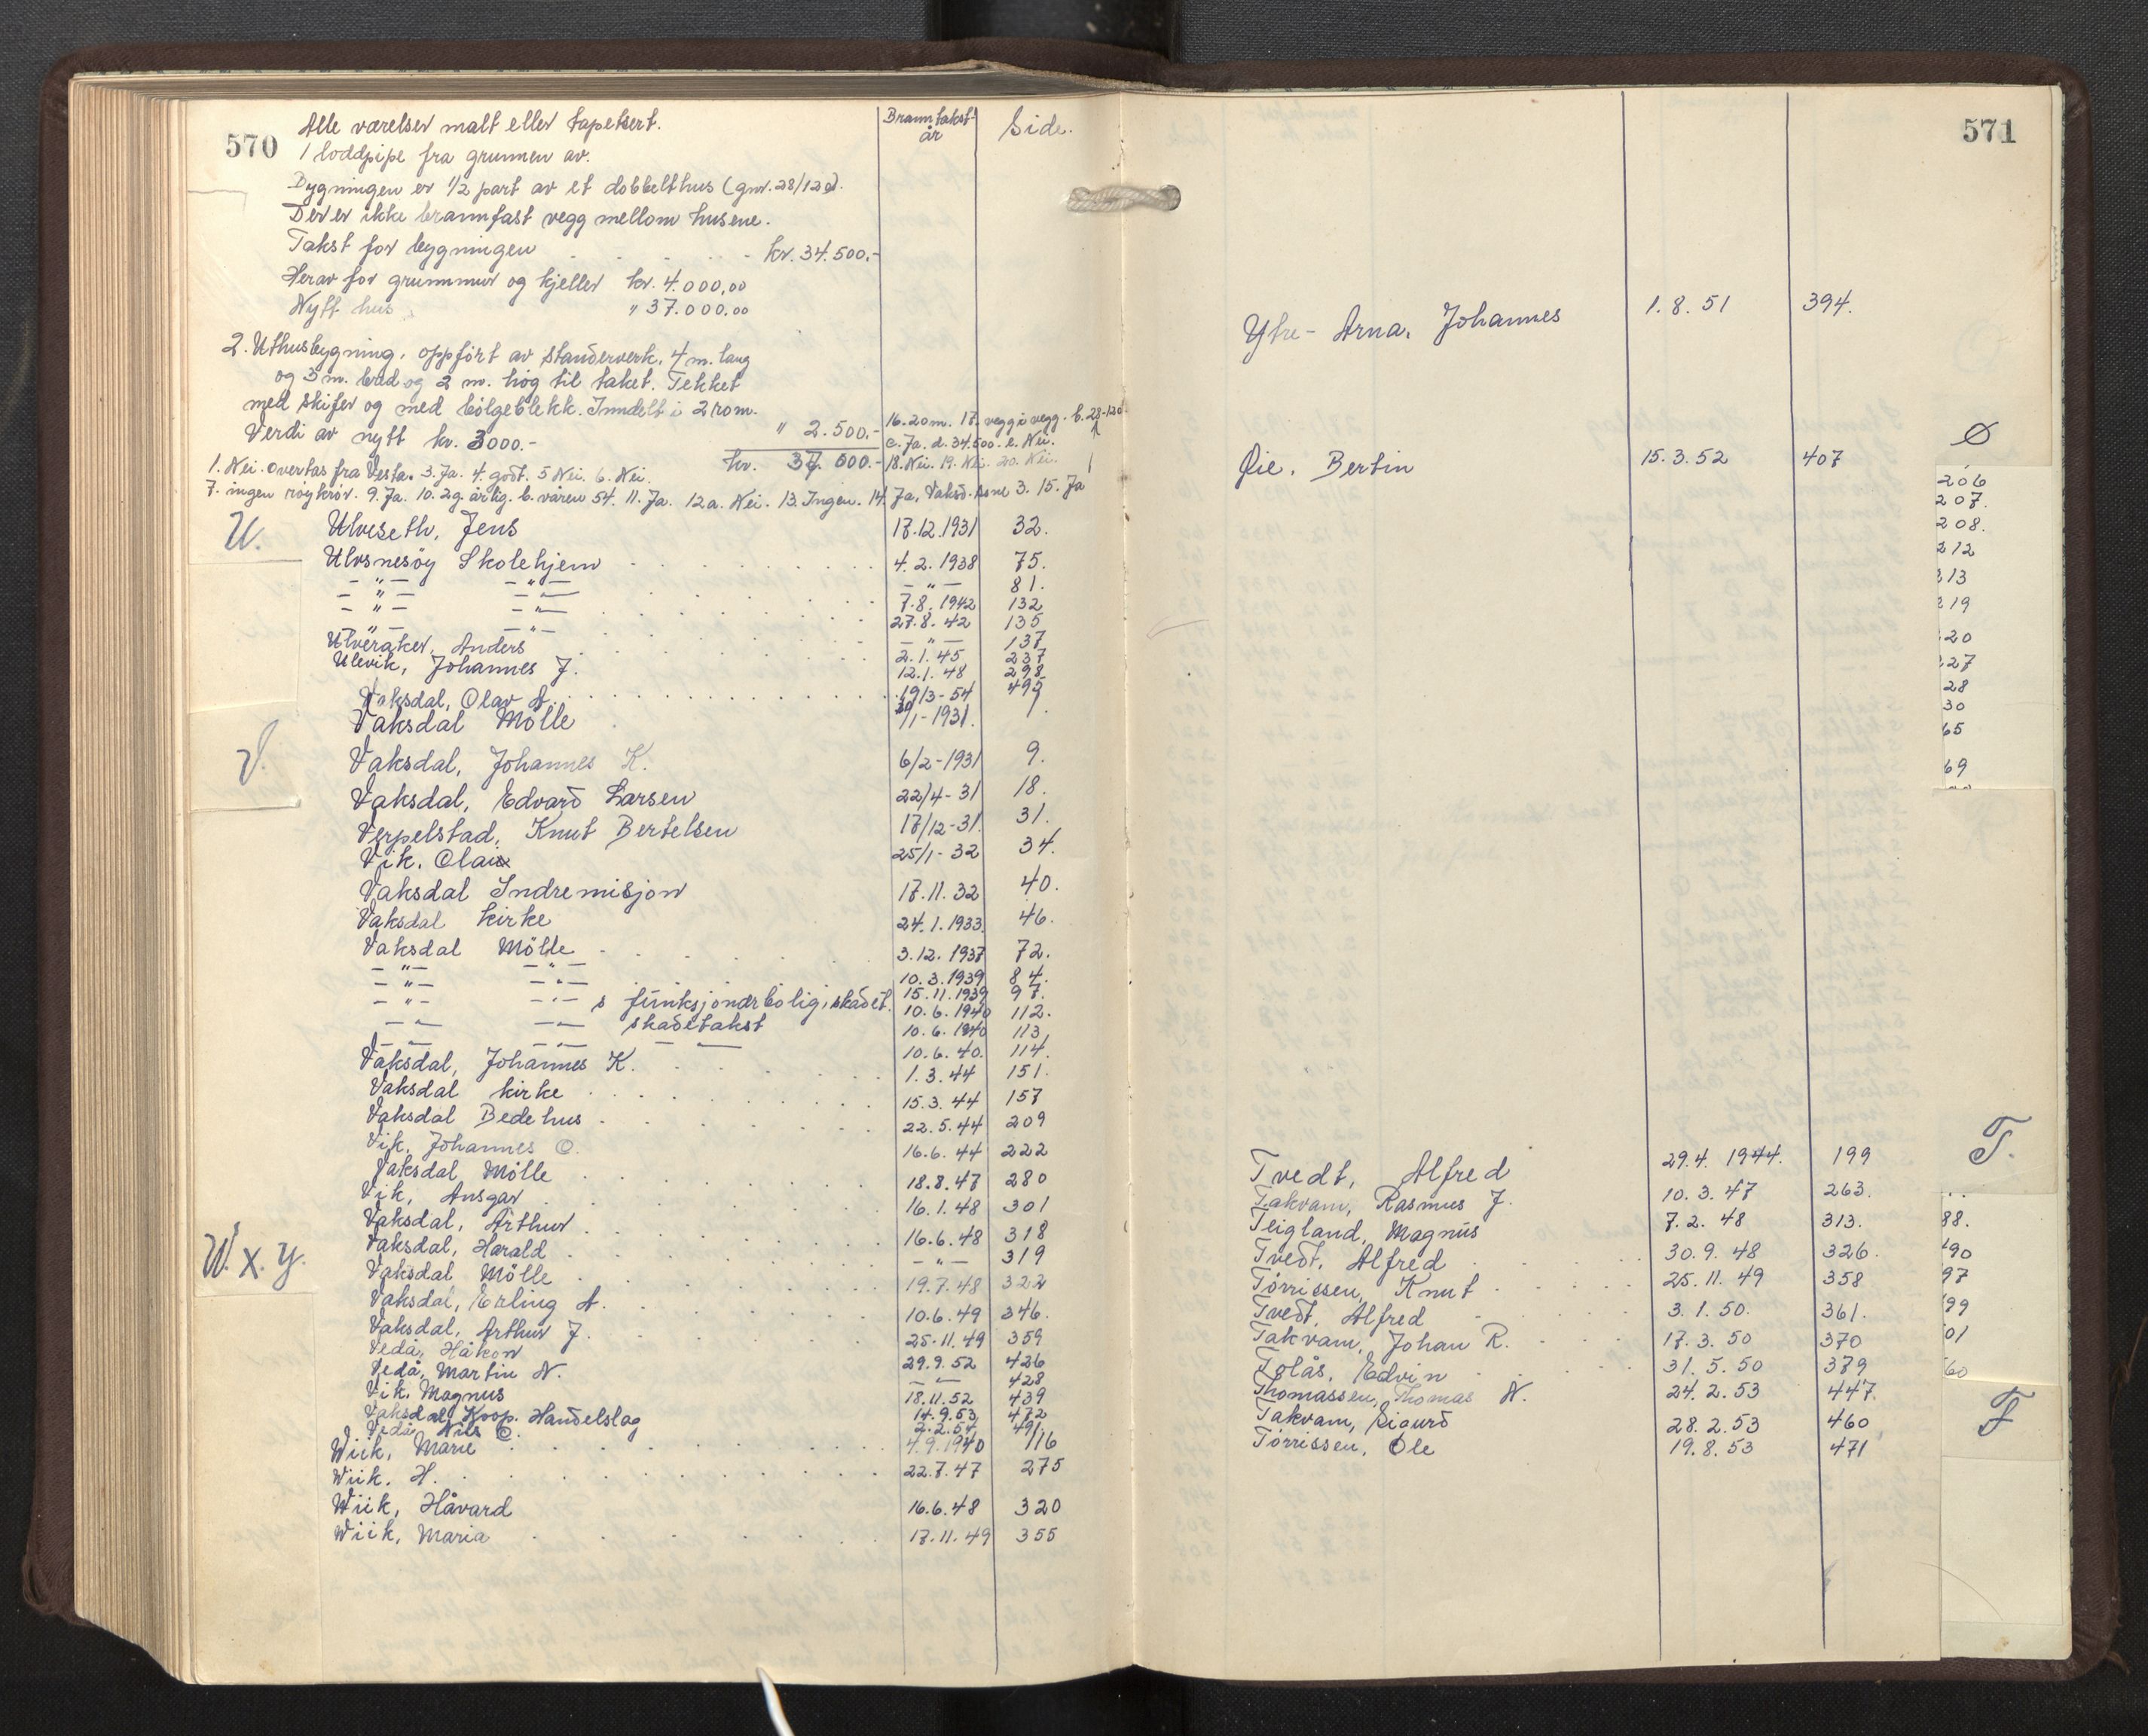 570
Alle værelser malt eller tapetsert.
1 loddpipe fra grunnen av.
Bygningen er 1/2 part av et dobbelthus (gnr. 28/120).
Der er ikke brannfast vegg mellom husene.
Takst for bygningen kr. 34.500.-
Herav for grunnmur og kjeller kr. 4.000,00
Nytt hus " 37.000.00
2. Uthusbygning, oppført av standerverk, 4 m. lang
og 3 m. bred og 2 m. høg til taket. Tekket
med skifer og med bølgeblekk. Inndelt i 2 rom.
" 2.500.-
Verdi av nytt kr. 3000.-
kr. 37.000.-
16. 20 m. 17. vegg i vegg. b. 28-120
c. Ja. d. 34.500. e. Nei.
18. Nei. 19. Nei. 20. Nei.
1. Nei. overtas fra Vesta. 3. Ja. 4. godt. 5 Nei. 6. Nei.
7. ingen 9. Ja. 10. 2 g. årlig. b. våren 54. 11. Ja. 12a. Nei. 13. Ingen. 14. Ja, Vaksd. 3. 15. Ja
Branntakst-år Side.
U.
Ulveseth, Jens 17.12.1931 32.
Ulvsnesøy Skolehjem 4.2.1938 75.
— " — — " — — " — 81.
— " — — " — 7.8.1942 132
— " — — " — 27.8.42 135
Ulveraker, Anders — " — 137
Ulevik, Johannes J. 2.1.45 237
12.1.48 298
Vaksdal, Olav A. 19/3-54 495
Vaksdal Mölle 30/1-1931. 1.
V.
Vaksdal, Johannes K. 6/2-1931 9.
Vaksdal, Edvard Larsen 22/4-31 18.
Verpelstad, Knut Bertelsen 17/12-31. 31.
Vik. Olai 25/1-32 34.
Vaksdal Indremisjon 17.11.32 40.
Vaksdal kirke 24.1.1933. 46.
Vaksdal Mölle 3.12.1937 72.
— " — — " — 10.3.1939 84.
15.11.1939 97.
— " — — " — s funksjonærbolig, skadet. 10.6.1940 112.
— " — — " — skadetakst 10.6.1940 113,
— " — — " — — " — 10.6.40. 114.
Vaksdal, Johannes K. 1.3.44 151.
Vaksdal kirke 15.3.44 157
Vaksdal Bedehus 22.5.44 209
Vik, Johannes O. 16.6.44 222
Vaksdal Mölle 18.8.47 280
Vik, Ansgar 16.1.48 301
Vaksdal, Arthur 16.6.48 318
Vaksdal, Harald — " — 319
W. X. Y.
Vaksdal Mölle 19.7.48 322
Vaksdal, Erling A. 10.6.49 346.
Vaksdal, Arthur J. 25.11.49 359
Vedå, Håkon 29.9.52 426
Vedå, Martin N. — " — 428
Vik, Magnus 18.11.52 439
Vaksdal Koop. Handelslag 14.9.53 472
Vedå, Nils O. 2.2.54 491
Wiik, Marie 4.9.1940 116
Wiik. H. 22.7.47 275
Wiik, Håvard 16.6.48 320
Wiik, Maria 17.11.49 355
571
Ytre-Arna, Johannes 1.8.51 394.
Øie. Bertin 15.3.52 407
Ø
206
207.
208.
212
213
219
20
27
28
30
65
69
T.
Tvedt, Alfred 29.4.1944. 199
Takvam, Rasmus J. 10.3.47 263.
Teigland, Magnus 7.2.48 313.
Tvedt, Alfred 30.9.48 326.
Tørrissen, Knut 25.11.49 358
Tvedt, Alfred 3.1.50. 361.
Takvam, Johan R. 17.3.50 370
Tolås, Edvin 31.5.50 379
Thomassen, Thomas N. 24.2.53 447.
Takvam, Sigurd 28.2.53 460
Tørrissen, Ole 19.8.53 471
88.
90
97
99
01
60